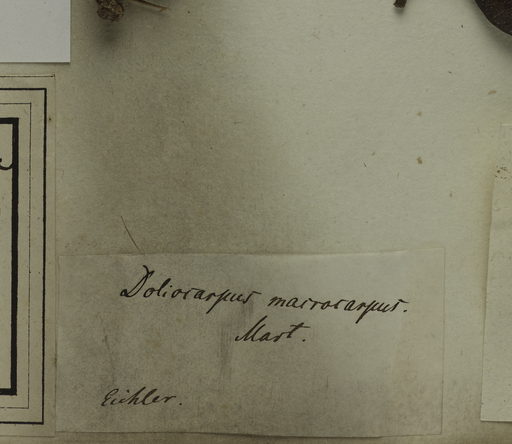 Doliocarpus macrocarpus.
Mart.
Eichler.